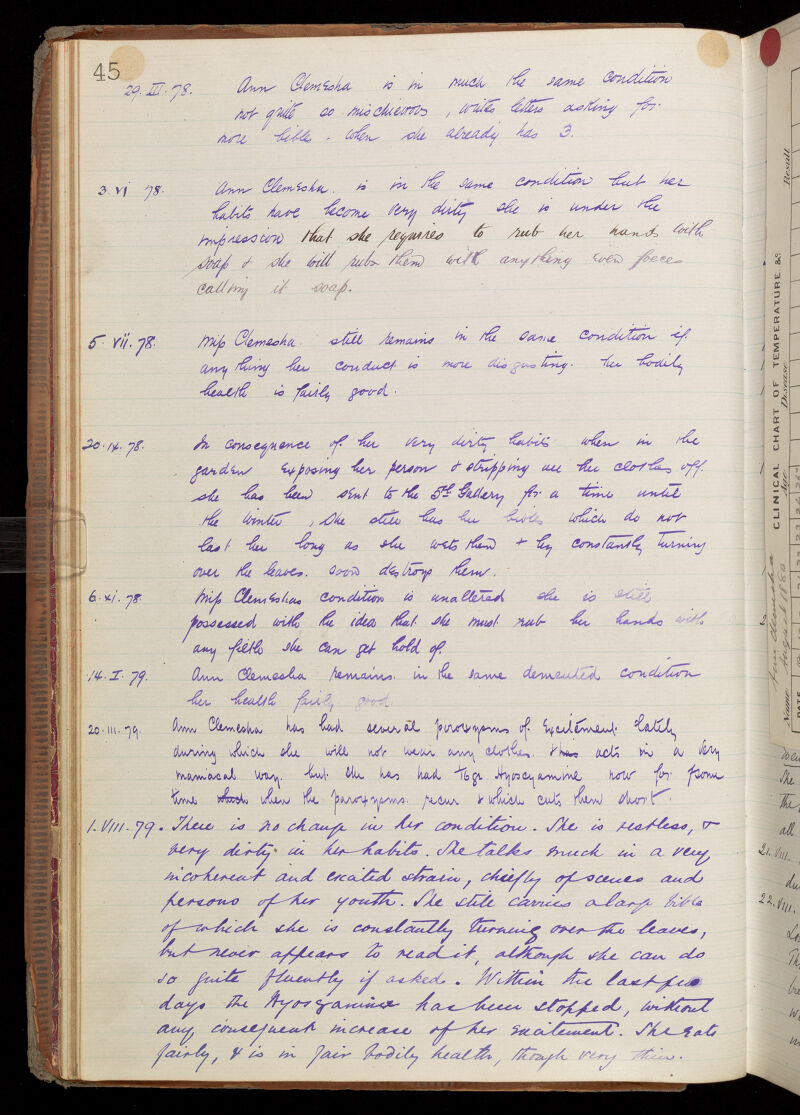 45
29. III. 78. Ann Clemesha is in much the same condition
not quite so mischievous, writes letters asking for
more bibles - when she already has 3.
3 vi 78. Ann Clemesha. is in the same condition but her
habits have become very dirty she is under the
impression that she requires to rub her hands with
soap & she will rub them with anything even foeces
calling it soap.
5. vii. 78. Miss Clemesha. still remains in the same condition if
any thing her conduct is more disgusting. her bodily
health is fairly good.
20. ix. 78. In consequence of her very dirty habits when in the
garden exposing her person & stripping all her clothes off.
she has been sent to the 5th Gallery for a time until
the winter, she still has her bibles which do not
last her long as she wets them & by constantly turning
over the leaves. soon destroys them.
6. xi. 78. Miss Clemeshas condition is unaltered she is still
possessed with the idea that she must rub her hands with
any filth she can get hold of.
14. I. 79. Ann Clemesha remains in the same demented condition
her health fairly good
20. III. 79. Ann Clemesha has had several paroxysms of Excitement lately
during which she will not wear any clothes. & acts in a very
maniacal way. but she has had Hyoscyamine now for some
time when the paroxysms recur & which cuts them short.
1. VIII. 79. There is no change in her condition. She is restless, &
very dirty in her habits. She talks much in a very
incoherent and excited strain, chiefly of scenes and
persons of her youth. She still carries a large bible
of which she is constantly turning over the leaves,
but never appears to read it, although she can do
so quite fluently if asked. Within the last few
days the Hyoscyamine has been stopped, without
any consequent increase of her excitement. She eats
fairly, & is in fair bodily health, though very thin.
CLINICAL CHART OF TEMPERATURE &c
Result
Disease
Age
Name
Ann Clemesha
August 1880
She
the
all
21. VIII.
22. VIII.